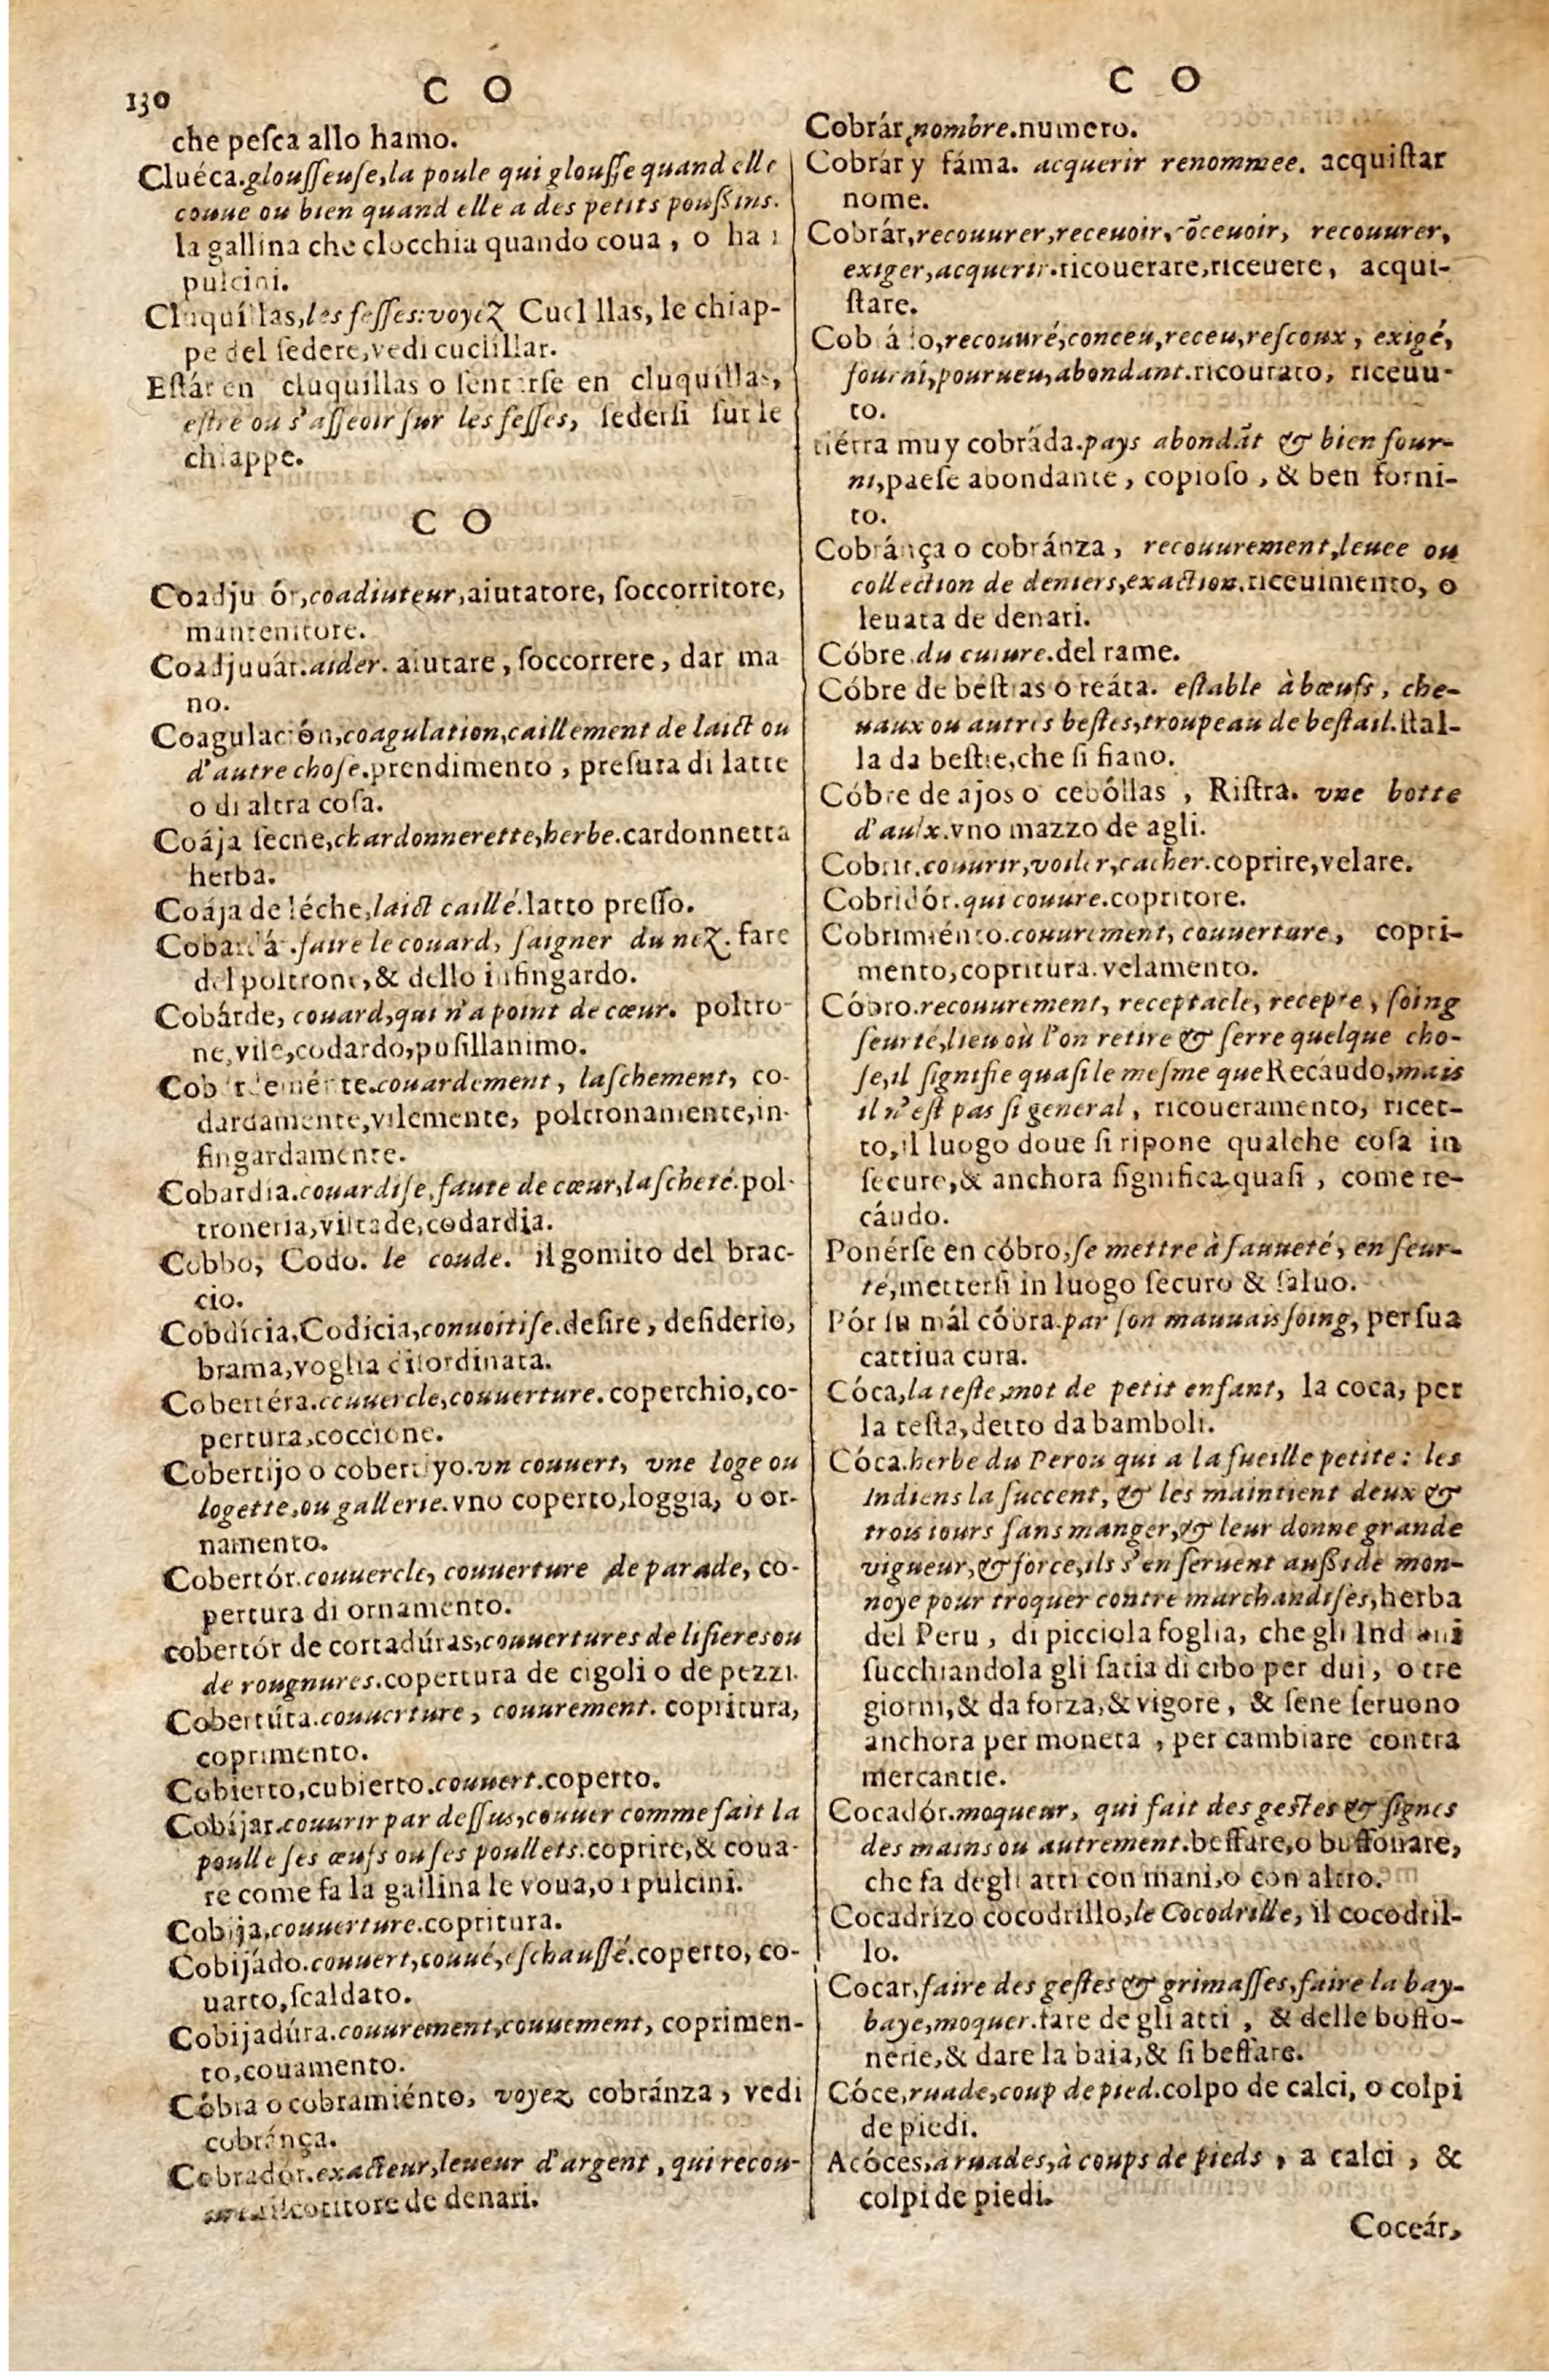 130
C O
che peſca allo hamo.
Cluéca.glouſſeuſe,la poule qui glouſſe quand elle
couue ou bien quand elle a des petits pouſsins.
la gallina che clocchia quando coua, o ha i
pulcini.
Cluquíllas,les feſſes:voyez Cuclillas, le chiap-
pe del ſedere,vedi cuclillar.
Eſtár en cluquillas o ſentarſe en cluquillas,
eſtre ou s'aſſeoir ſur les feſſes, ſederſi ſur le
chiappe.
C O
ór,coadiuteur,aiutatore, ſoccorritore,
mantenitore.
Coadjuuár.aider. aiutare, ſoccorrere, dar ma
no.
Coagulación,coagulation,caillement de laict ou
d'autre choſe.prendimento, preſura di latte
o di altra coſa.
Coája ,chardonnerette,herbe.cardonnetta
herba.
Coája de léche,laict caillé.latto preſſo.
faire le couard, ſaigner du nez. fare
del poltrone,& dello infingardo.
Cobárde, couard,qui n'a point de cœur. poltro-
ne,vile,codardo,puſillanimo.
couardement, laſchement, co-
dardamente,vilemente, poltronamente,in-
fingardamente.
Cobardia.couardiſe,faute de cœur,laſcheté.pol-
troneria,viltade,codardia.
Cobbo, Codo. le coude. il gomito del brac-
cio.
Cobdícia,Codícia,conuoitiſe.deſire, deſiderio,
brama,voglia diſordinata.
Cobertéra.couuercle,couuerture.coperchio,co-
pertura,coccione.
Cobertijo o cobertuyo.vn couuert, vne loge ou
logette,ou gallerie.vno coperto,loggia, o or-
namento.
Cobertór.couuercle, couuerture de parade, co-
pertura di ornamento.
cobertór de cortadúras,couuertures de liſieres ou
de rougnures.copertura de cigoli o de pezzi.
Cobertúra.couuerture, couurement. copritura,
coprimento.
Cobierto,cubierto.couuert.coperto.
Cobíjar.couurir par deſſus,couuer comme fait la
poulle ſes œufs ou ſes poullets.coprire,& coua-
re come fa la gallina le voua,o i pulcini.
Cobija,couuerture.copritura.
Cobijádo.couuert,couué,eſchauffé.coperto, co-
uarto,ſcaldato.
Cobijadúra.couurement,couuement, coprimen-
to,couamento.
Cóbra o cobramiénto, voyez cobránza, vedi
cobránça.
Cobradór.exacteur,leueur d'argent, qui recou-
de denari.
C O
Cobrár nombre.numero.
Cobrár y fáma. acquerir renommee. acquiſtar
nome.
Cobrár,recouurer,receuoir, cõceuoir, recouurer,
exiger,acquerir.ricouerare,riceuere, acqui-
ſtare.
Cobrádo,recouuré,conceu,receu,reſcoux, exigé,
fourni,pourueu,abondant.ricourato, riceuu-
to.
tiérra muy cobráda.pays abondãt & bien four-
ni,paeſe abondante, copioſo, & ben forni-
to.
Cobránça o cobránza, recouurement,leuee ou
collection de deniers,exaction.riceuimento, o
leuata de denari.
Cóbre.du cuiure.del rame.
Cóbre de béſtias o reáta. eſtable à bœufs, che-
uaux ou autres beſtes,troupeau de beſtail.ſtal-
la da beſtie,che ſi fiano.
Cóbre de ajos o cebóllas, Riſtra. vne botte
d'aulx.vno mazzo de agli.
Cobrir.couurir,voiler,cacher.coprire,velare.
Cobridór.qui couure.copritore.
Cobrimiénto.couurement, couuerture, copri-
mento,copritura.velamento.
Cóbro.recouurement, receptacle, recepte, ſoing
ſeurté,lieu où l'on retire & ſerre quelque cho-
ſe,il ſignifie quaſi le meſme que Recáudo,mais
il n'eſt pas ſi general, ricoueramento, ricet-
to,il luogo doue ſi ripone qualche coſa in
ſecuro,& anchora ſignifica quaſi, come re-
cáudo.
Ponérſe en cóbro,ſe mettre à ſauueté, en ſeur-
té,metterſi in luogo ſecuro & ſaluo.
Pór ſu mál cóbra.par ſon mauuais ſoing, per ſua
cattiua cura.
Cóca,la teſte,mot de petit enfant, la coca, per
la teſta,detto da bamboli.
Cóca.herbe du Perou qui a la fueille petite: les
Indiens la ſuccent, & les maintient deux &
trois iours ſans manger,& leur donne grande
vigueur,& force,ils s'en ſeruent auſsi de mon-
noye pour troquer contre marchandiſes,herba
del Peru, di picciola foglia, che gli Indiani
ſucchiandola gli ſatia di cibo per dui, o tre
giorni,& da forza,& vigore, & ſene ſeruono
anchora per moneta, per cambiare contra
mercantie.
Cocadór.moqueur, qui fait des geſtes & ſignes
des mains ou autrement.beffare,o buffonare,
che fa degli atti con mani,o con altro.
Cocadrízo cocodrillo,le Cocodrille, il cocodril-
lo.
Cocar.faire des geſtes & grimaſſes,faire la bay-
baye,moquer.fare de gli atti, & delle boffo-
nerie,& dare la baia,& ſi beffare.
Cóce,ruade,coup de pied.colpo de calci, o colpi
de piedi.
Acóces,à ruades,à coups de pieds, a calci, &
colpi de piedi.
Coceár,